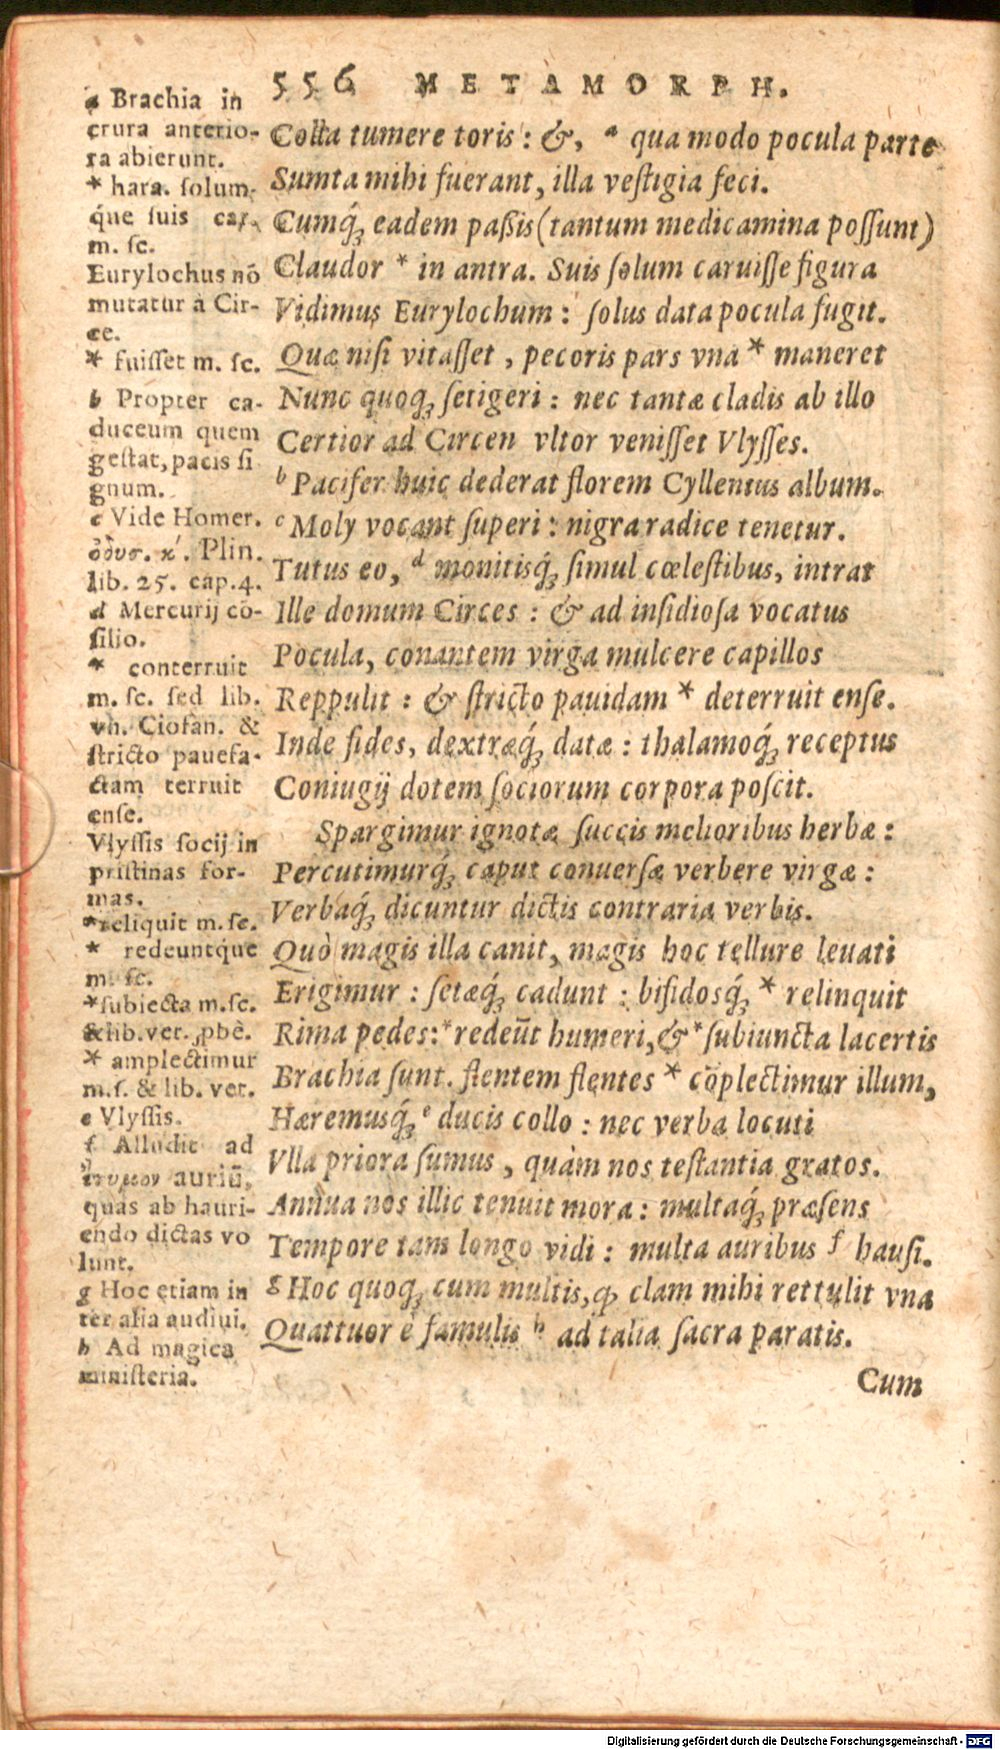 556 METAMORPH.
Colla tumere toris: &, a qua modo pocula parte
Sumta mihi fuerant, illa veſtigia feci.
Cumq́; eadem paßis (tantum medicamina poſſunt)
Claudor * in antra. Suis ſolum caruiſſe figura
Vidimus Eurylochum: ſolus data pocula fugit.
Quæ niſi vitaſſet, pecoris pars vna * maneret
Nunc quoq; ſetigeri: nec tantæ cladis ab illo
Certior ad Circen vltor veniſſet Vlyſſes.
b Pacifer huic dederat florem Cyllenius album.
c Moly vocant ſuperi: nigra radice tenetur.
Tutus eo, d monitisq́; ſimul cœleſtibus, intrat
Ille domum Circes: & ad inſidioſa vocatus
Pocula, conantem virga mulcere capillos
Reppulit: & ſtricto pauidam * deterruit enſe.
Inde fides, dextræq́; datæ: thalamoq́; receptus
Coniugij dotem ſociorum corpora poſcit.
Spargimur ignotæ ſuccis melioribus herbæ:
Percutimurq́; caput conuerſæ verbere virgæ:
Verbaq́; dicuntur dictis contraria verbis.
Quò magis illa canit, magis hoc tellure leuati
Erigimur: ſetæq́; cadunt: bifidosq́; * relinquit
Rima pedes: * redeūt humeri, & * ſubiuncta lacertis
Brachia ſunt. flentem flentes * cōplectimur illum,
Hæremusq́; e ducis collo: nec verba locuti
Vlla priora ſumus, quàm nos teſtantia gratos.
Annua nos illic tenuit mora: multaq́; præſens
Tempore tam longo vidi: multa auribus f hauſi.
g Hoc quoq; cum multis, ꝙ clam mihi rettulit vna
Quattuor è famulis h ad talia ſacra paratis.
Cum
a Brachia in
crura anterio-
ra abierunt.
* hara. ſolum-
q́ue ſuis car.
m. ſc.
Eurylochus nō
mutatur à Cir-
ce.
* fuiſſet m. ſc.
b Propter ca-
duceum quem
geſtat, pacis ſi
gnum.
c Vide Homer.
ὀδυσ. κ´. Plin.
lib. 25. cap. 4.
d Mercurij cō-
ſilio.
* conterruit
m. ſc. ſed lib.
vn. Ciofan. &
ſtricto pauefa-
ctam terruit
enſe.
Vlyſſis ſocij in
priſtinas for-
mas.
* reliquit m. ſc.
* redeuntque
m. ſc.
* ſubiecta m. ſc.
& lib. ver. ꝓbē.
* amplectimur
m. ſ. & lib. vet.
e Vlyſſis.
f Alludit ad
ἔτυμον auriū,
quas ab hauri-
endo dictas vo
lunt.
g Hoc etiam in
ter alia audiui.
h Ad magica
miniſteria.
Digitalisierung gefördert durch die Deutsche Forschungsgemeinschaft - DFG